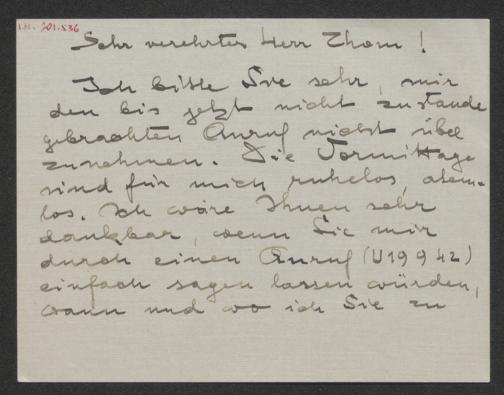 I.N. 201.536
Sehr verehrter Herr Thom!
Ich bitte Sie sehr, mir
den bis jetzt nicht zustande
gebrachten Anruf nicht übel
zunehmen. Die Vormittage
sind für mich ruhelos, atem-
los. Ich wäre Ihnen sehr
dankbar, wenn Sie mir
durch einen Anruf (U19942)
einfach sagen lassen würden,
wann und wo ich Sie zu